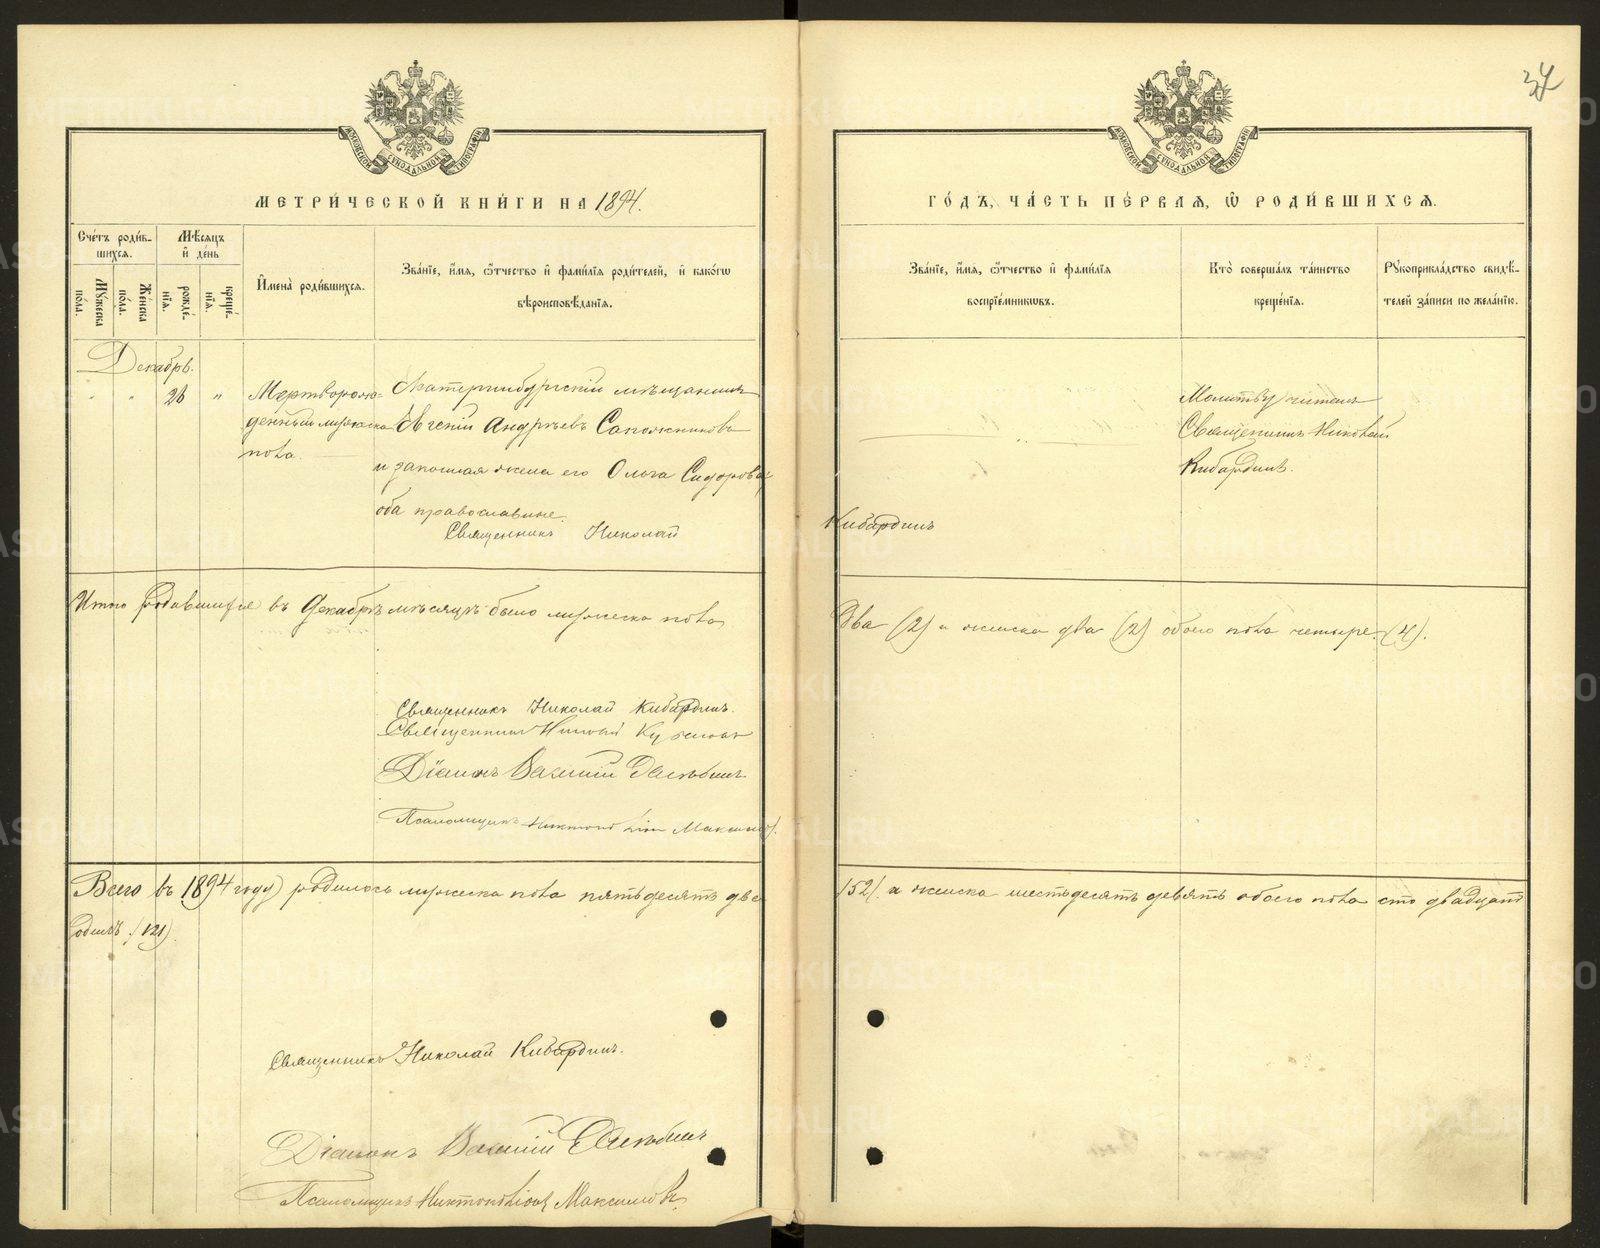 34
МЕТРИ́ЧЕСКОЙ КНИ́ГИ НА 1894.
ГО́ДЪ, ЧА́СТЬ ПЕ́РВАЯ, Ѡ РОДИ́ВШИХСЯ.
Сче́тъ роди́в-
шихся.
Му́жеска
по́ла.
Же́нска
по́ла.
Мѣ́сяцъ
и҆ де́нь
рожде́-
нїя.
креще́-
нїя.
И҆мена̀ роди́вшихся.
Зва́нїе, и҆́мя, ѻ҆́тчество и҆ фами́лїя роди́телей, и҆ како́гѡ
вѣроисповѣ́данїя.
Зва́нїе, и҆́мя, ѻ҆́тчество и҆ фами́лїя
воспрїе́мникѡвъ.
Кто̀ соверша́лъ та́инство
креще́нїя.
Рукоприкла́дство свидѣ́-
телей за́писи по жела́нїю.
Декабрь.
" " 26 "
Мертворож-
денный мужска
пола.
Екатеринбургскій мѣщанинъ
Евгеній Андреевъ Сапожниковъ
и законная жена его Ольга Сидорова
оба православные.
Священникъ Николай
Кибардинъ
Молитву читалъ
Священникъ Николай
Кибардинъ.
Итого родившихся въ Декабрѣ мѣсяцѣ было мужеска пола
два (2) и женска два (2) обоего пола четыре. (4).
Священникъ Николай Кибардинъ.
Священникъ
Діаконъ Василій
Псаломщикъ Максимовъ.
Всего въ 1894 году родилось мужеска пола пятьдесятъ два
(52). и женска шестьдесятъ девять обоего пола сто двадцать
одинъ. (121).
Священникъ Николай Кибардинъ.
Діаконъ Василій
Псаломщикъ Максимовъ.
METRIKI.GASO-URAL.RU